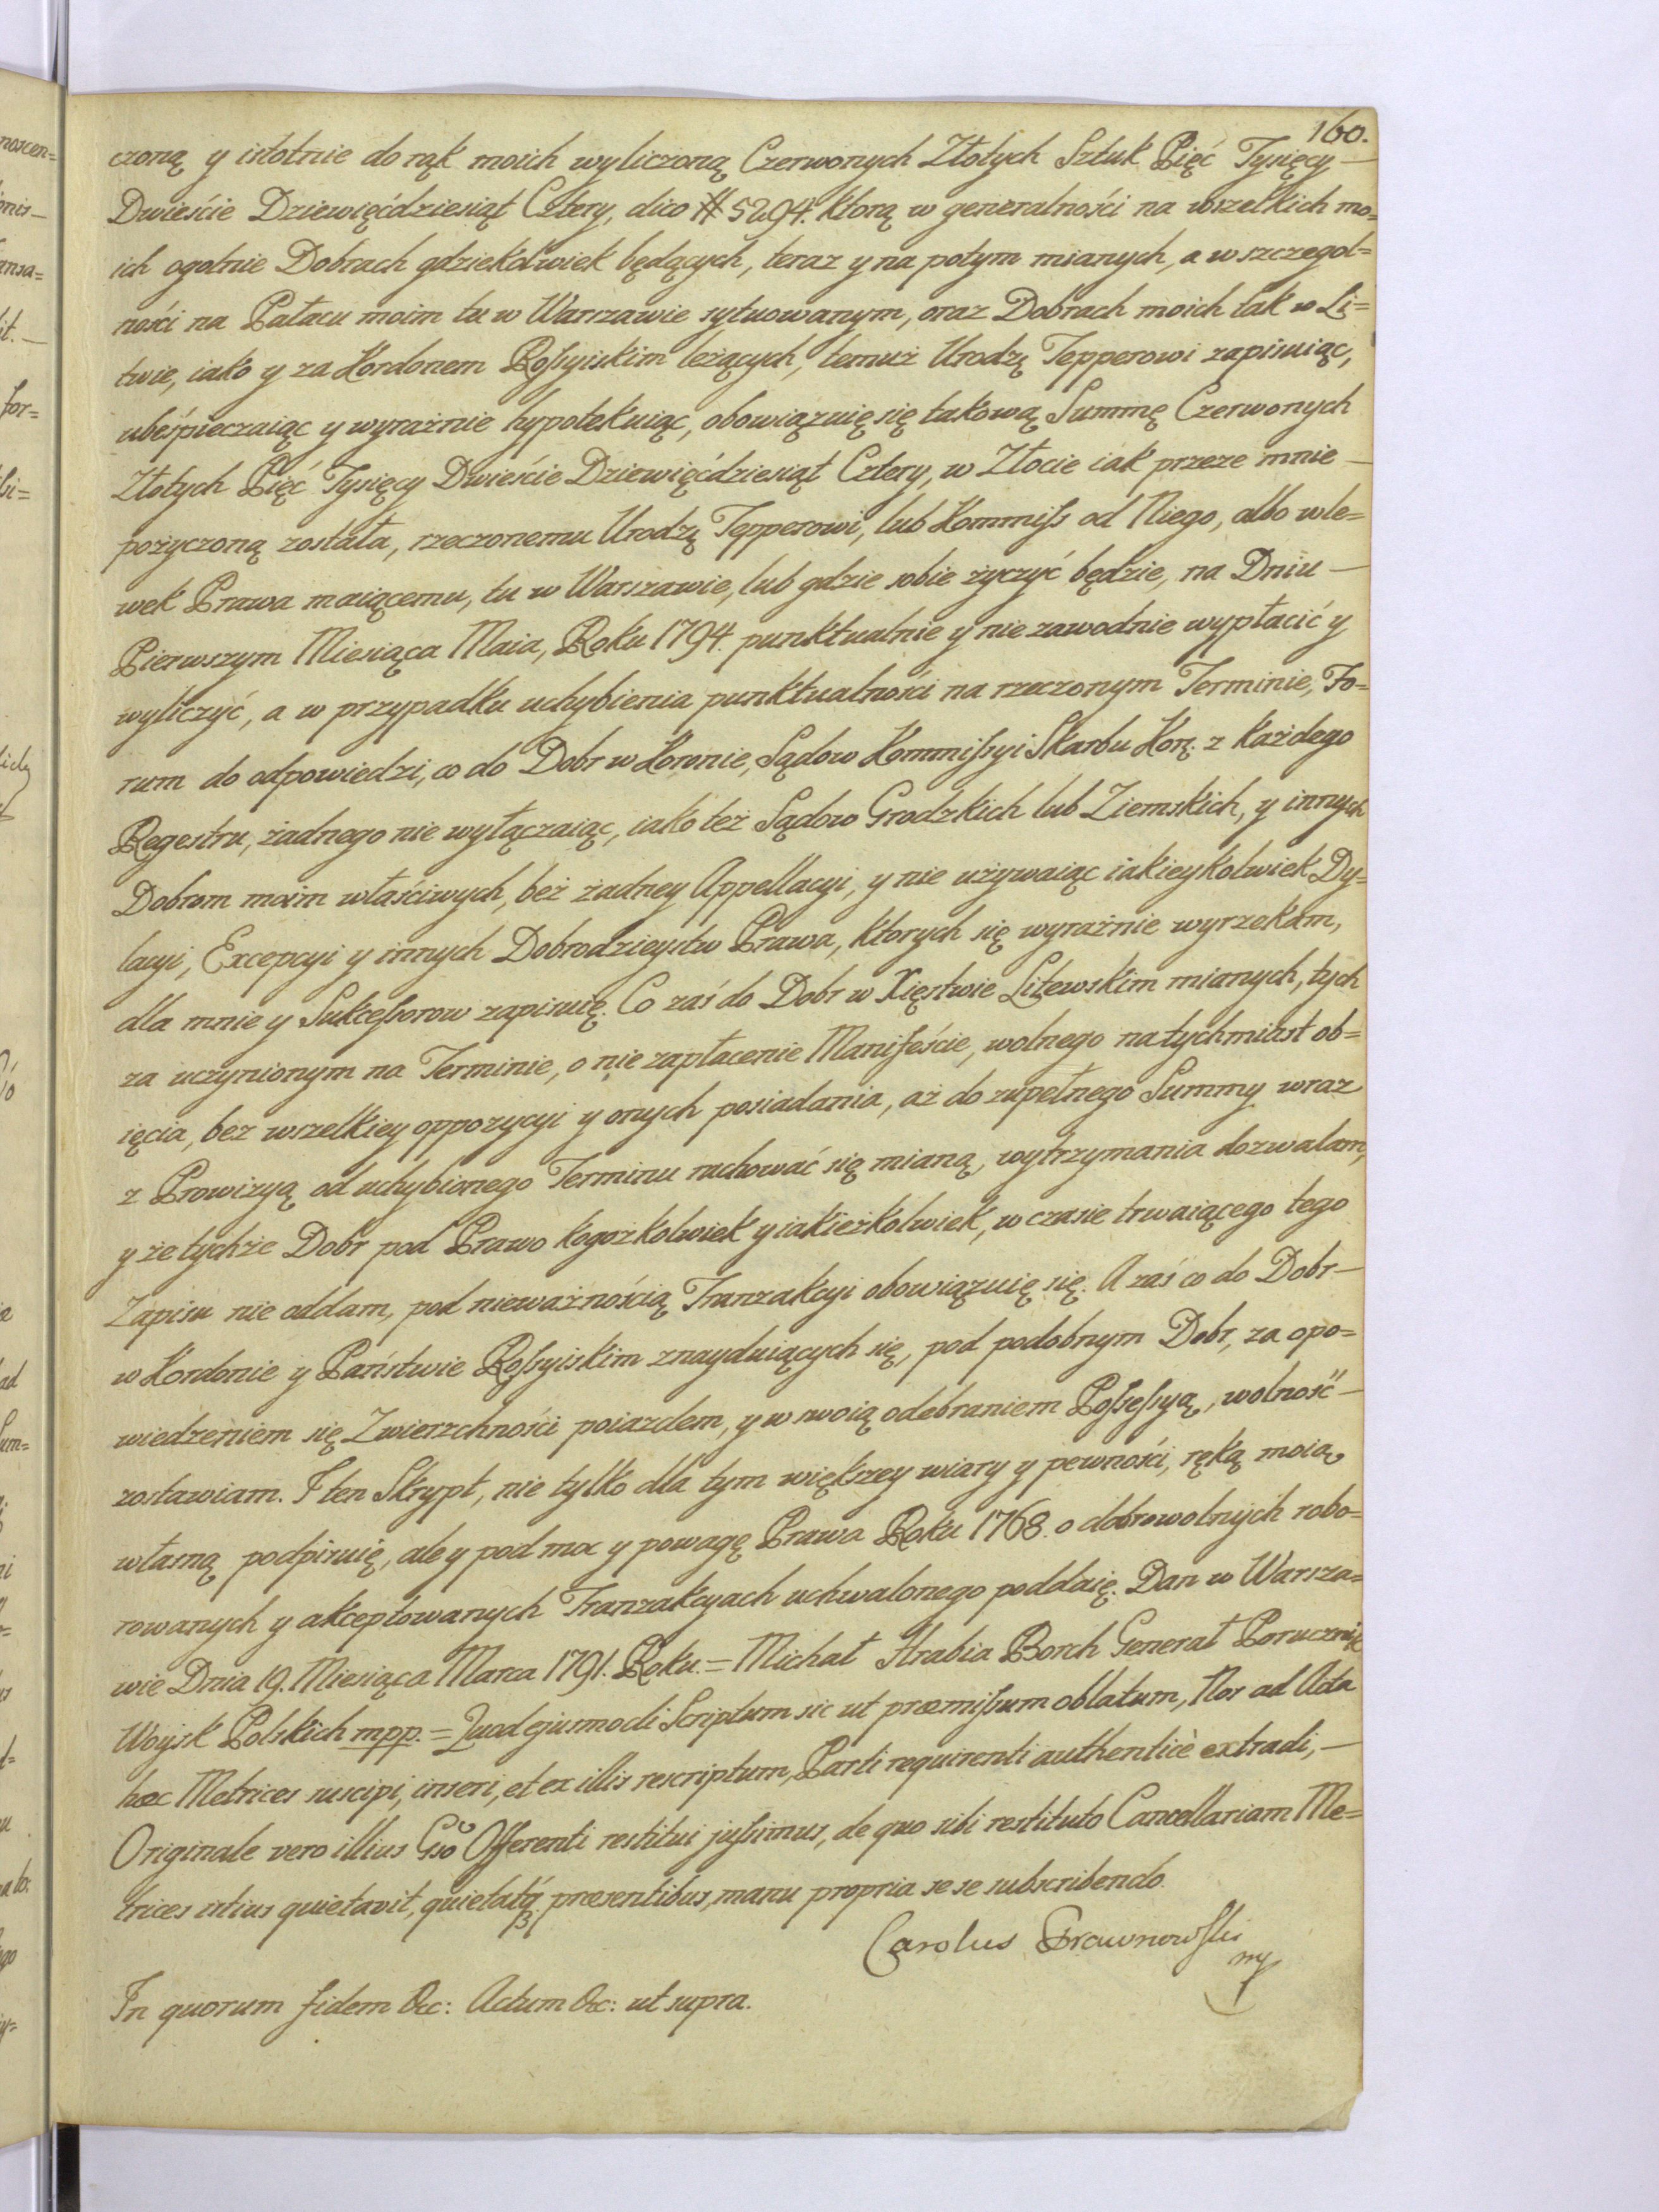 160.
czoną y istotnie do rąk moich wyliczoną Czerwonych Złotych Sztuk Pięć Tysięcy —
Dwieście Dziewięćdziesiąt Cztery, dico # 5294. ktorą w generalności na wszelkich mo=
ich ogolnie Dobrach gdziekolwiek będących, teraz y na potym mianych, a w szczegol=
ności na Pałacu moim tu w Warszawie sytuowanym, oraz Dobrach moich tak w Li=
twie, iako y za Kordonem Roſsyiskim leżących, temuż Urodzę Tepperowi zapisuiąc,
ubeśpieczaiąc y wyraźnie hypotekuiąc, obowiązuię się takową Summę Czerwonych
Złotych Pięć Tysięcy Dwieście Dziewięćdziesiąt Cztery, w Złocie iak przeze mnie —
pożyczoną została, rzeczonemu Urodzę Tepperowi, lub Kommiſs od Niego, albo wle=
wek Prawa maiącemu, tu w Warszawie, lub gdzie sobie życzyć będzie, na Dniu —
Pierwszym Miesiąca Maia, Roku 1794. punktualnie y nie zawodnie wypłacić y
wyliczyć, a w przypadku uchybienia punktualności na rzeczonym Terminie, Fo=
rum do odpowiedzi, co do Dobr w Koronie, Sądow Kommiſsyi Skarbu Korą. z każdego
Regestru, żadnego nie wyłączaiąc, iako też Sądow Grodzkich lub Ziemskich, y innych
Dobrom moim właściwych, beż żadney Appellacyi, y nie używaiąc iakieykolwiek Dy=
lacyi, Excepcyi y innych Dobrodzieystw Prawa, ktorych się wyraźnie wyrzekam,
dla mnie y Sukceſsorow zapisuię. Co zaś do Dobr w Xięstwie Litewskim mianych, tych
za uczynionym na Terminie, o nie zapłacenie Manifeście, wolnego natychmiast ob=
ięcia, bez wszelkiey oppozycyi y onych posiadania, aż do zupełnego Summy wraz
z Prowizyą od uchybionego Terminu rachować się mianą, wytrzymania dozwalam,
y że tychże Dobr pod Prawo kogożkolwiek y iakieżkolwiek, w czasie trwaiącego tego
Zapisu nie oddam, pod nieważnością Tranzakcyi obowiązuię się. A zaś co do Dobr —
w Kordonie y Państwie Roſsyiskim znayduiących się, pod podobnym Dobr, za opo=
wiedzeniem się Zwierzchności poiazdem, y w swoią odebraniem Poſseſsyą, wolność —
zostawiam. I ten Skrypt, nie tylko dla tym większey wiary y pewności, ręką moią
własną podpisuię, ale y pod moc y powagę Prawa Roku 1768. o dobrowolnych robo=
rowanych y akceptowanych Tranzakcyach uchwalonego poddaię. Dan w Warsza=
wie Dnia 19. Miesiąca Marca 1791. Roku. = Michał Hrabia Borch Generał Porucznik
Woysk Polskich mpp. = Quod ejusmodi Scriptum sic ut præmiſsum oblatum, Nos ad Acta
hæc Metrices suscipi, inseri, et ex illis rescriptum, Parti requirenti authenticè extradi, —
Originale vero illius Gso Offerenti restitui juſsimus, de quo sibi restituto Cancellariam Me=
trices istius quietavit, quietatq; præsentibus, manu propria se se subscribendo.
Carolus
mp
In quorum fidem &c: Actum &c: ut supra.